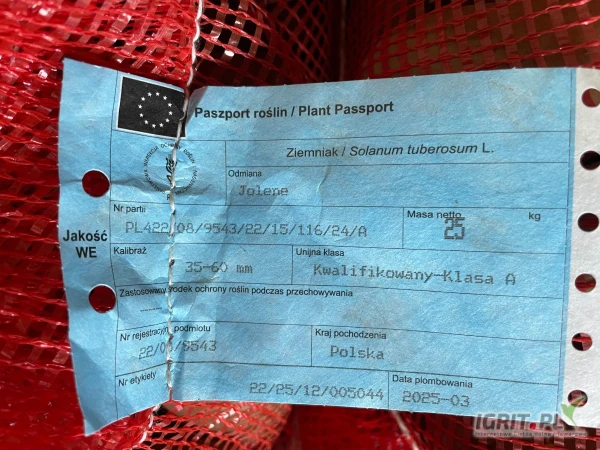 Paszport roślin / Plant Passport
Ziemniak / Solanum tuberosum L.
Odmiana
Jolene
Nr partii
PL422/08/9543/22/15/116/24/A
Masa netto
25
kg
Jakość
WE
Kalibraż
35-60 mm
Unijna klasa
Kwalifikowany-Klasa A
Zastosowany środek ochrony roślin podczas przechowywania
Nr rejestracyjny podmiotu
9543
Kraj pochodzenia
Polska
Nr etykiety
22/25/12/005044
Data plombowania
2025-03
IGRIT.PL